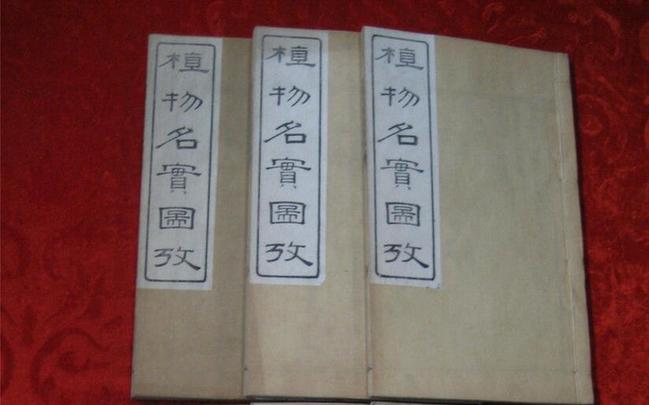 植物名實圖攷
植物名實圖攷
植物名實圖攷